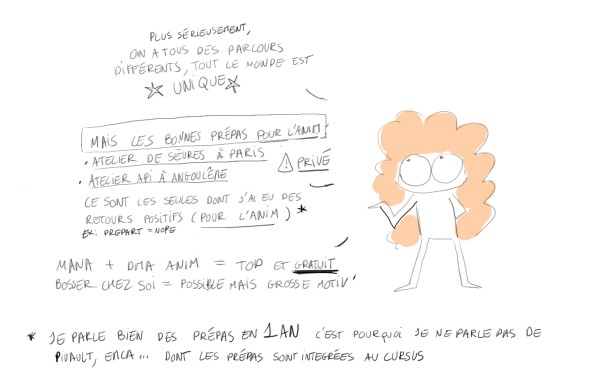 PLUS SÉRIEUSEMENT,
ON A TOUS DES PARCOURS
DIFFÉRENTS, TOUT LE MONDE EST
☆ UNIQUE ☆
MAIS LES BONNES PRÉPAS POUR L'ANIM
• ATELIER DE SÈVRES À PARIS
• ATELIER API À ANGOULÊME
⚠ PRIVÉ
CE SONT LES SEULES DONT J'AI EU DES
RETOURS POSITIFS (POUR L'ANIM) *
EX: PREPART = NOPE
MANA + DMA ANIM = TOP ET GRATUIT
BOSSER CHEZ SOI = POSSIBLE MAIS GROSSE MOTIV'
* JE PARLE BIEN DES PRÉPAS EN 1 AN C'EST POURQUOI JE NE PARLE PAS DE
PIVAULT, EMCA... DONT LES PRÉPAS SONT INTEGRÉES AU CURSUS